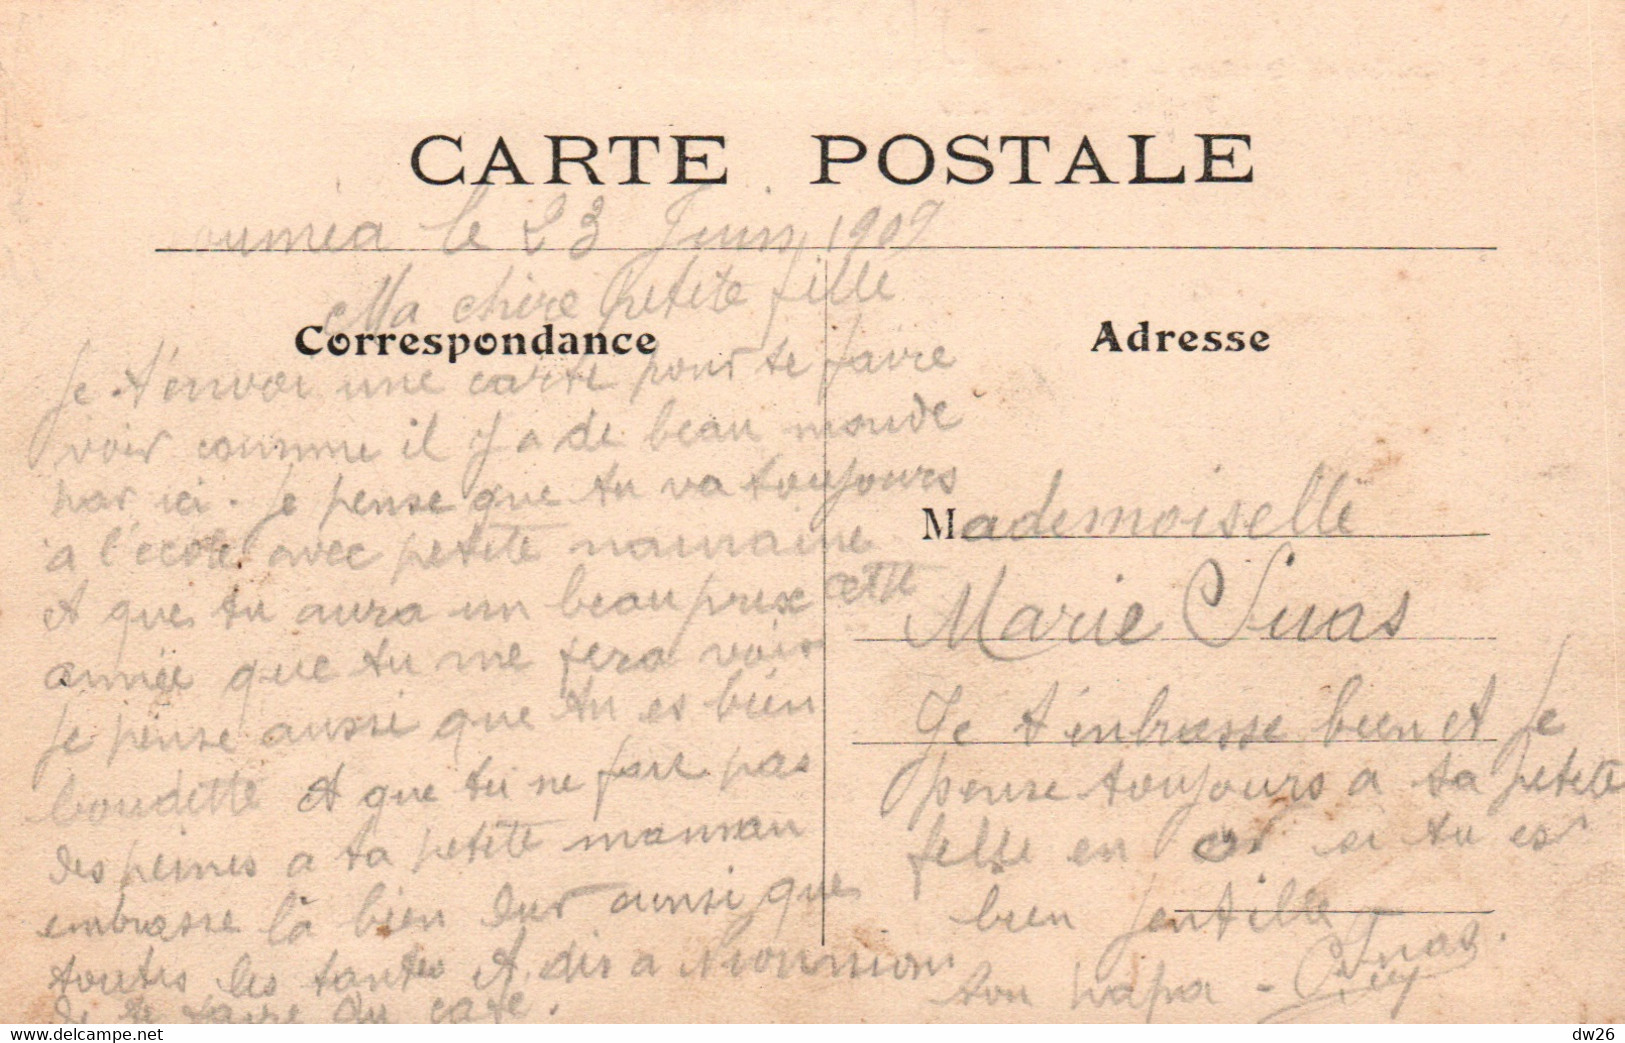 CARTE POSTALE
oumea le 23 Juin 1909
Ma chere Petite fille
Correspondance
Je t'envoi une carte pour te faire
voir comme il y a de beau monde
par ici. Je pense que tu va toujours
a l'ecole avec petite
et que tu aura un beau prix cette
année que tu me fera voir
Je pense aussi que tu es bien
et que tu ne fait pas
des peines a ta petite maman
embrasse la bien dur ainsi que
toutes les tantes et dis a
de te faire du cafe.
Adresse
Mademoiselle
Marie Suas
Je t'enbrasse bien et Je
pense toujours a ta petete
felle en or si tu est
bien jentille
ton papa - Suas
dw26